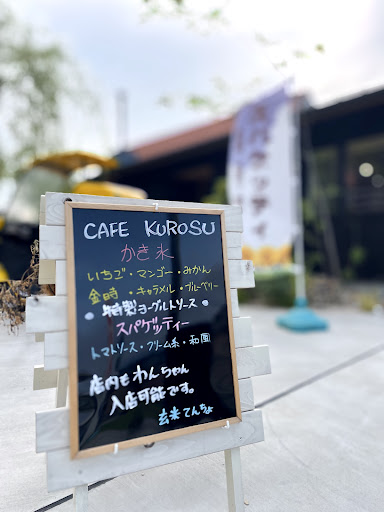 CAFE KUROSU
かき氷
いちご・マンゴー・みかん
金時・キャラメル・ブルーベリー
・特製ヨーグルトソース・
スパゲッティー
トマトソース・クリーム系・和風
店内もわんちゃん
入店可能です。
玄米てんちょ
スパゲッティ